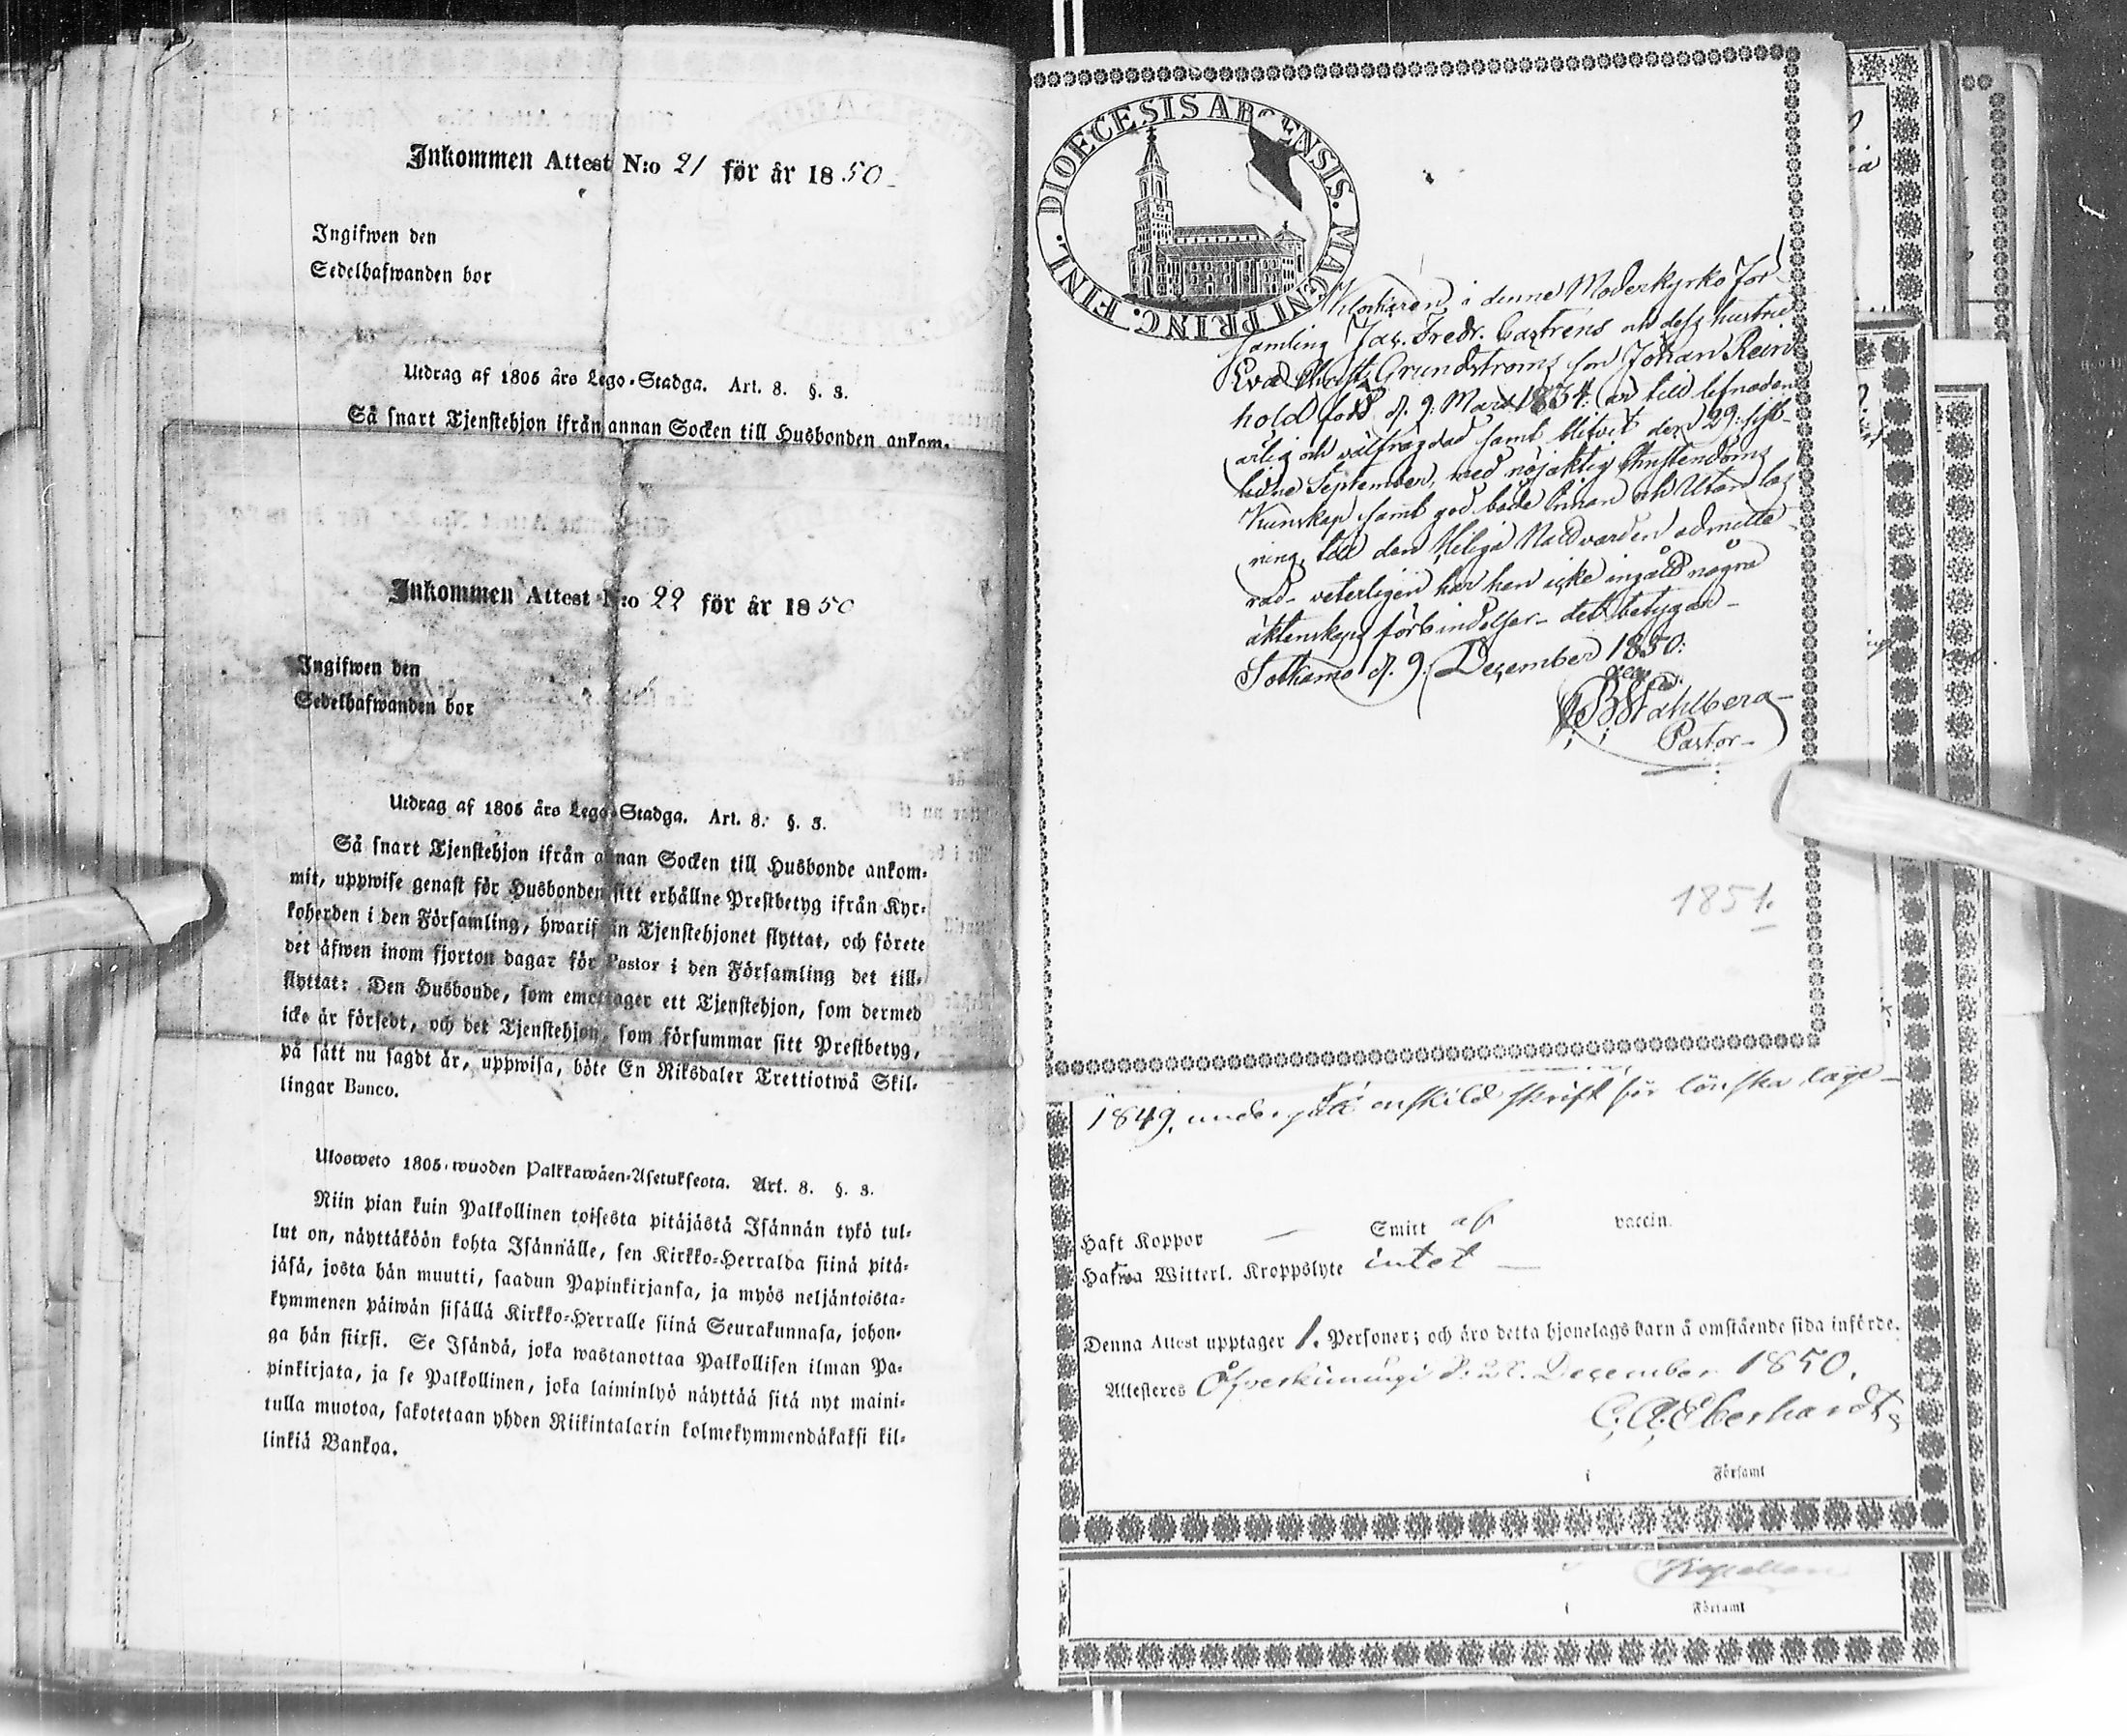 Inkommen Attest N:o 21 för år 1850
Ingifwen den
Sedelhafwanden bor
Utdrag af 1805 års Lego-Stadga. Art. 8. §. 3.
Så snart Tjenstehjon ifrån annan Socken till Husbonden ankom-
Inkommen Attest N:o 22 för år 1850
Ingifwen den
Sedelhafwanden bor
Utdrag af 1805 års Lego-Stadga. Art. 8. §. 3.
Så snart Tjenstehjon ifrån annan Socken till Husbonde ankom-
mit, uppwise genast för Husbonden sitt erhållne Prestbetyg ifrån Kyr-
koherden i den Församling, hwarifrån Tjenstehjonet flyttat, och förete
det äfwen inom fjorton dagar för Pastor i den Församling det till-
flyttat: Den Husbonde, som emottager ett Tjenstehjon, som dermed
icke är försedt, och det Tjenstehjon, som försummar sitt Prestbetyg,
på sätt nu sagdt är, uppwisa, böte En Riksdaler Trettiotwå Skil-
lingar Banco.
Ulosweto 1805 wuoden Palkkawäen-Asetuksesta. Art. 8. §. 3.
Niin pian kuin Palkollinen toisesta pitäjästä Isännän tykö tul-
lut on, näyttäköön kohta Isännälle, sen Kirkko-Herralda siinä pitä-
jäsä, josta hän muutti, saadun Papinkirjansa, ja myös neljäntoista-
kymmenen päiwän sisällä Kirkko-Herralle siinä Seurakunnasa, johon-
ga hän siirsi. Se Isändä, joka wastanottaa Palkollisen ilman Pa-
pinkirjata, ja se Palkollinen, joka laiminlyö näyttää sitä nyt maini-
tulla muotoa, sakotetaan yhden Riikintalarin kolmekymmendäkaksi kil-
linkiä Bankoa.
DIOECESIS ABOENSIS. MAGNI PRINC. FINL.
Klockaren i denne Moderkyrko För
samling Jac. Fredr. Castrens och dess hustru
Eva Christ. Grundströms son Johan Rein
hold född d. 9. Mars 1834. är till lefnaden
ärlig och välfrägdad samt blifvit den 29. sist-
lidne September, med nöjaktig Christendoms
Kunskap samt god både Innan och Utan läs
ning, till den Heliga Nattvarden admitte
rad - veterligen har han icke ingått några
äktenskaps förbindelser - det betygar -
Sotkamo d. 9. December 1850.
Wahlberg
Pastor -
1851.
1849. enskild skrift för
Haft Koppor — Smitt af vaccin.
Hafwa Witterl. Kroppslyte intet —
Denna Attest upptager 1. Personer; och äro detta hjonelags barn å omstående sida införde.
Attesteras Öfverkiimingi December 1850.
C. A. Eberhardt
i Församl
Kapellan
i Församl